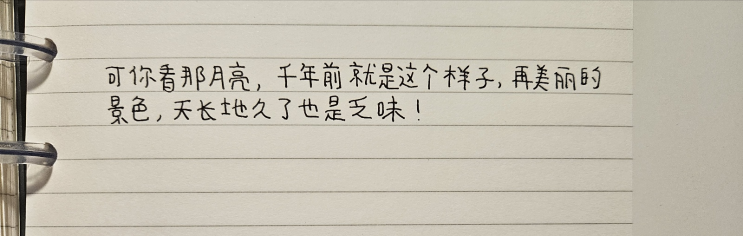 可你看那月亮，千年前就是这个样子，再美丽的
景色，天长地久了也是乏味！